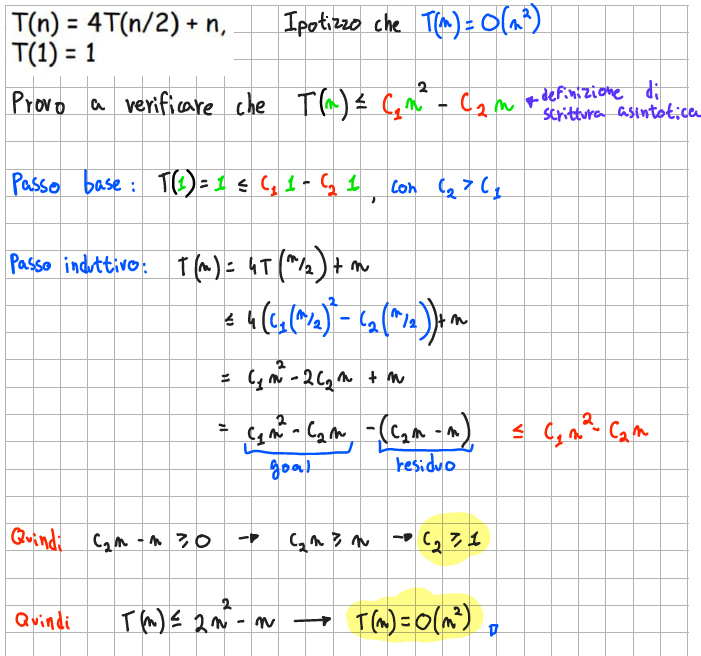 T(n) = 4T(n/2) + n, Ipotizzo che T(n) = O(n²)
T(1) = 1
Provo a verificare che T(n) ≤ C₁n² - C₂n ← definizione di
scrittura asintotica
Passo base: T(1) = 1 ≤ C₁1 - C₂1, con C₂ > C₁
Passo induttivo: T(n) = 4T(n/2) + n
≤ 4(C₁(n/2)² - C₂(n/2)) + n
= C₁n² - 2C₂n + n
= C₁n² - C₂n - (C₂n - n) ≤ C₁n² - C₂n
goal residuo
Quindi C₂n - n ≥ 0 → C₂n ≥ n → C₂ ≥ 1
Quindi T(n) ≤ 2n² - n → T(n) = O(n²)